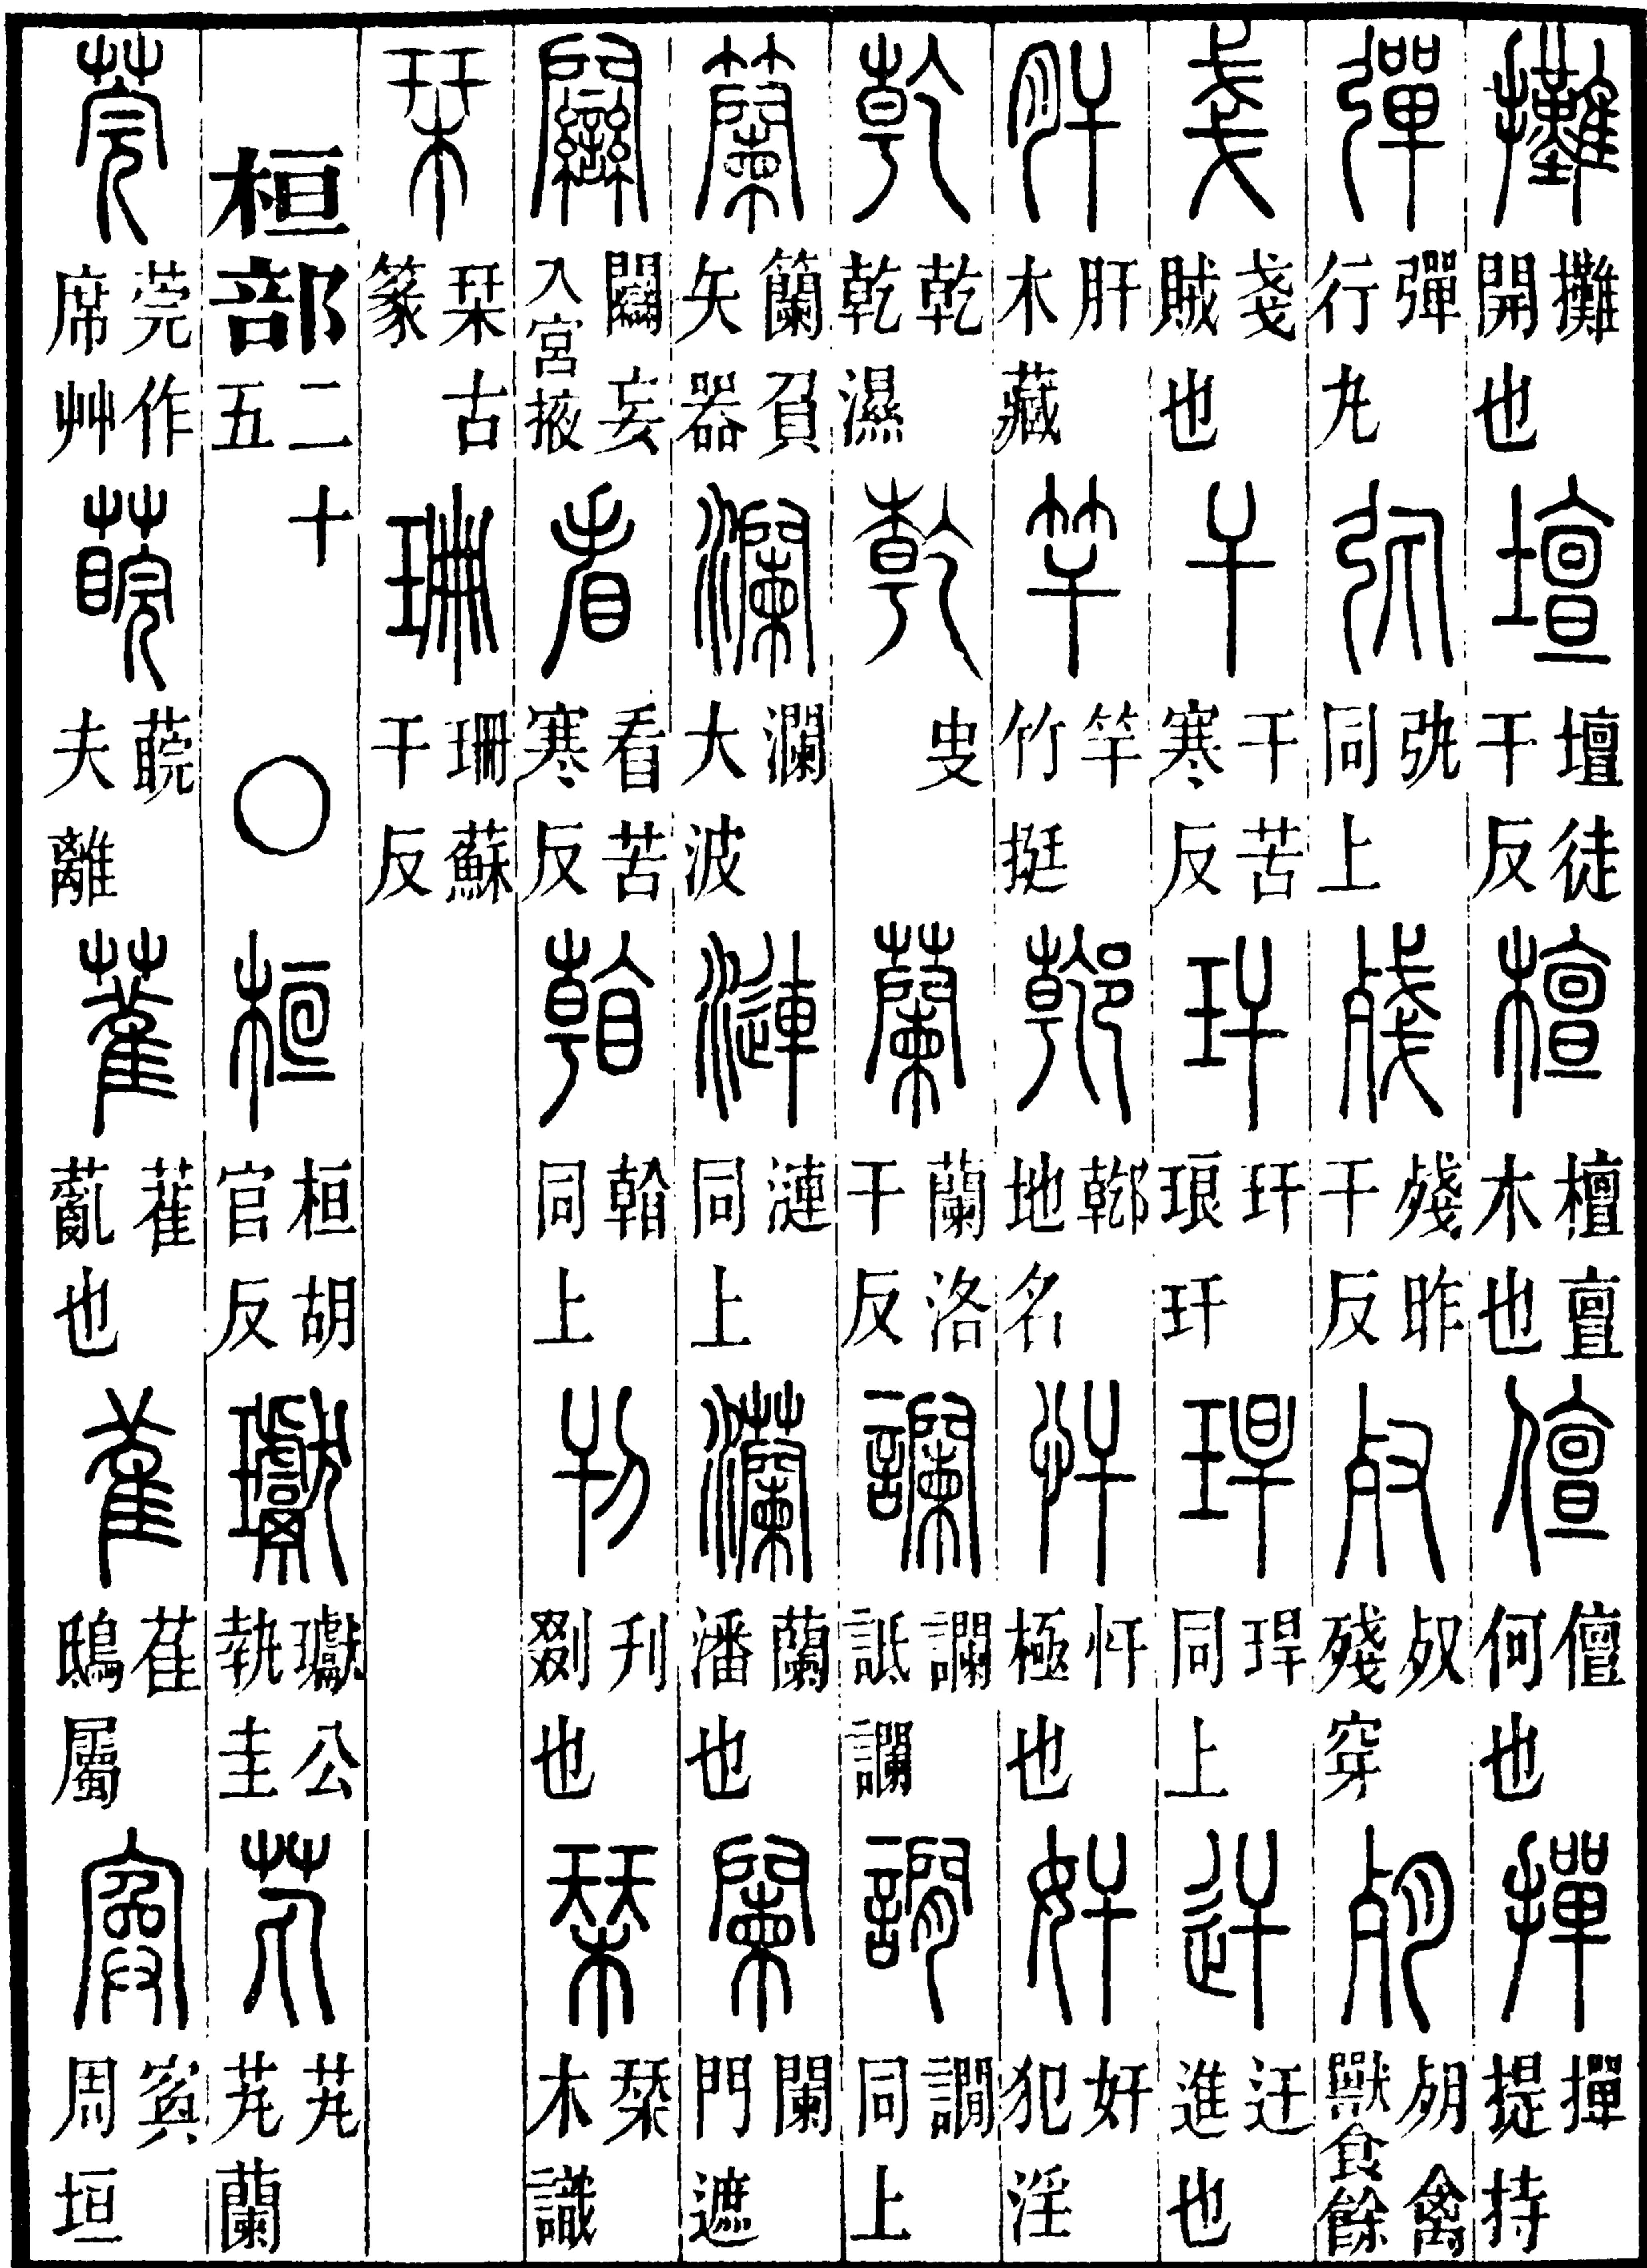 攤 攤開也 壇 壇徒干反 檀 檀亶木也 儃 儃何也 撣 撣提持
彈 彈行丸 𢎫 𢎫同上 殘 殘昨干反 𣦼 𣦼殘穿 𣦻 𣦻禽獸食餘
戔 戔賊也 干 干苦寒反 玕 玕琅玕 𤥚 𤥚同上 迀 迀進也
肝 肝木藏 竿 竿竹挺 地名 忓 忓極也 奸 奸犯淫
乾 乾乾濕 乾 叓 蘭 蘭洛干反 讕 讕詆讕 譋 譋同上
籣 籣負矢器 瀾 瀾大波 漣 漣同上 灡 蘭潘也 闌 闌門遮
妄入宮掖 看 看苦寒反 同上 刊 刊剟也 木識
栞 栞古篆 珊 珊蘇干反
桓部二十五 ○ 桓 桓胡官反 瓛 瓛公執圭 芄 芄芄蘭
莞 莞作席艸 夫離 萑 萑薍也 萑 萑鴟屬 寏 寏周垣